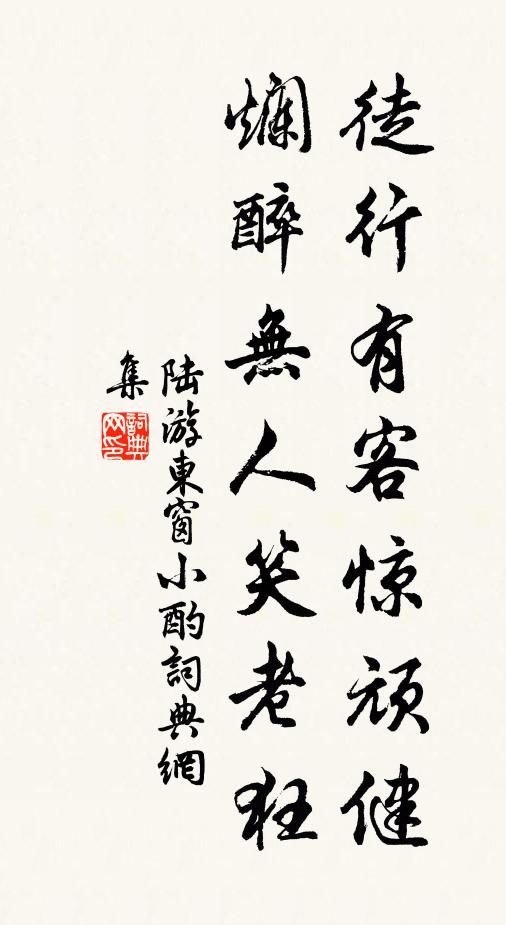 徒行有客惊頑健
爛醉無人笑老狂
陆游東窗小酌詞典網
集
詞典
网印